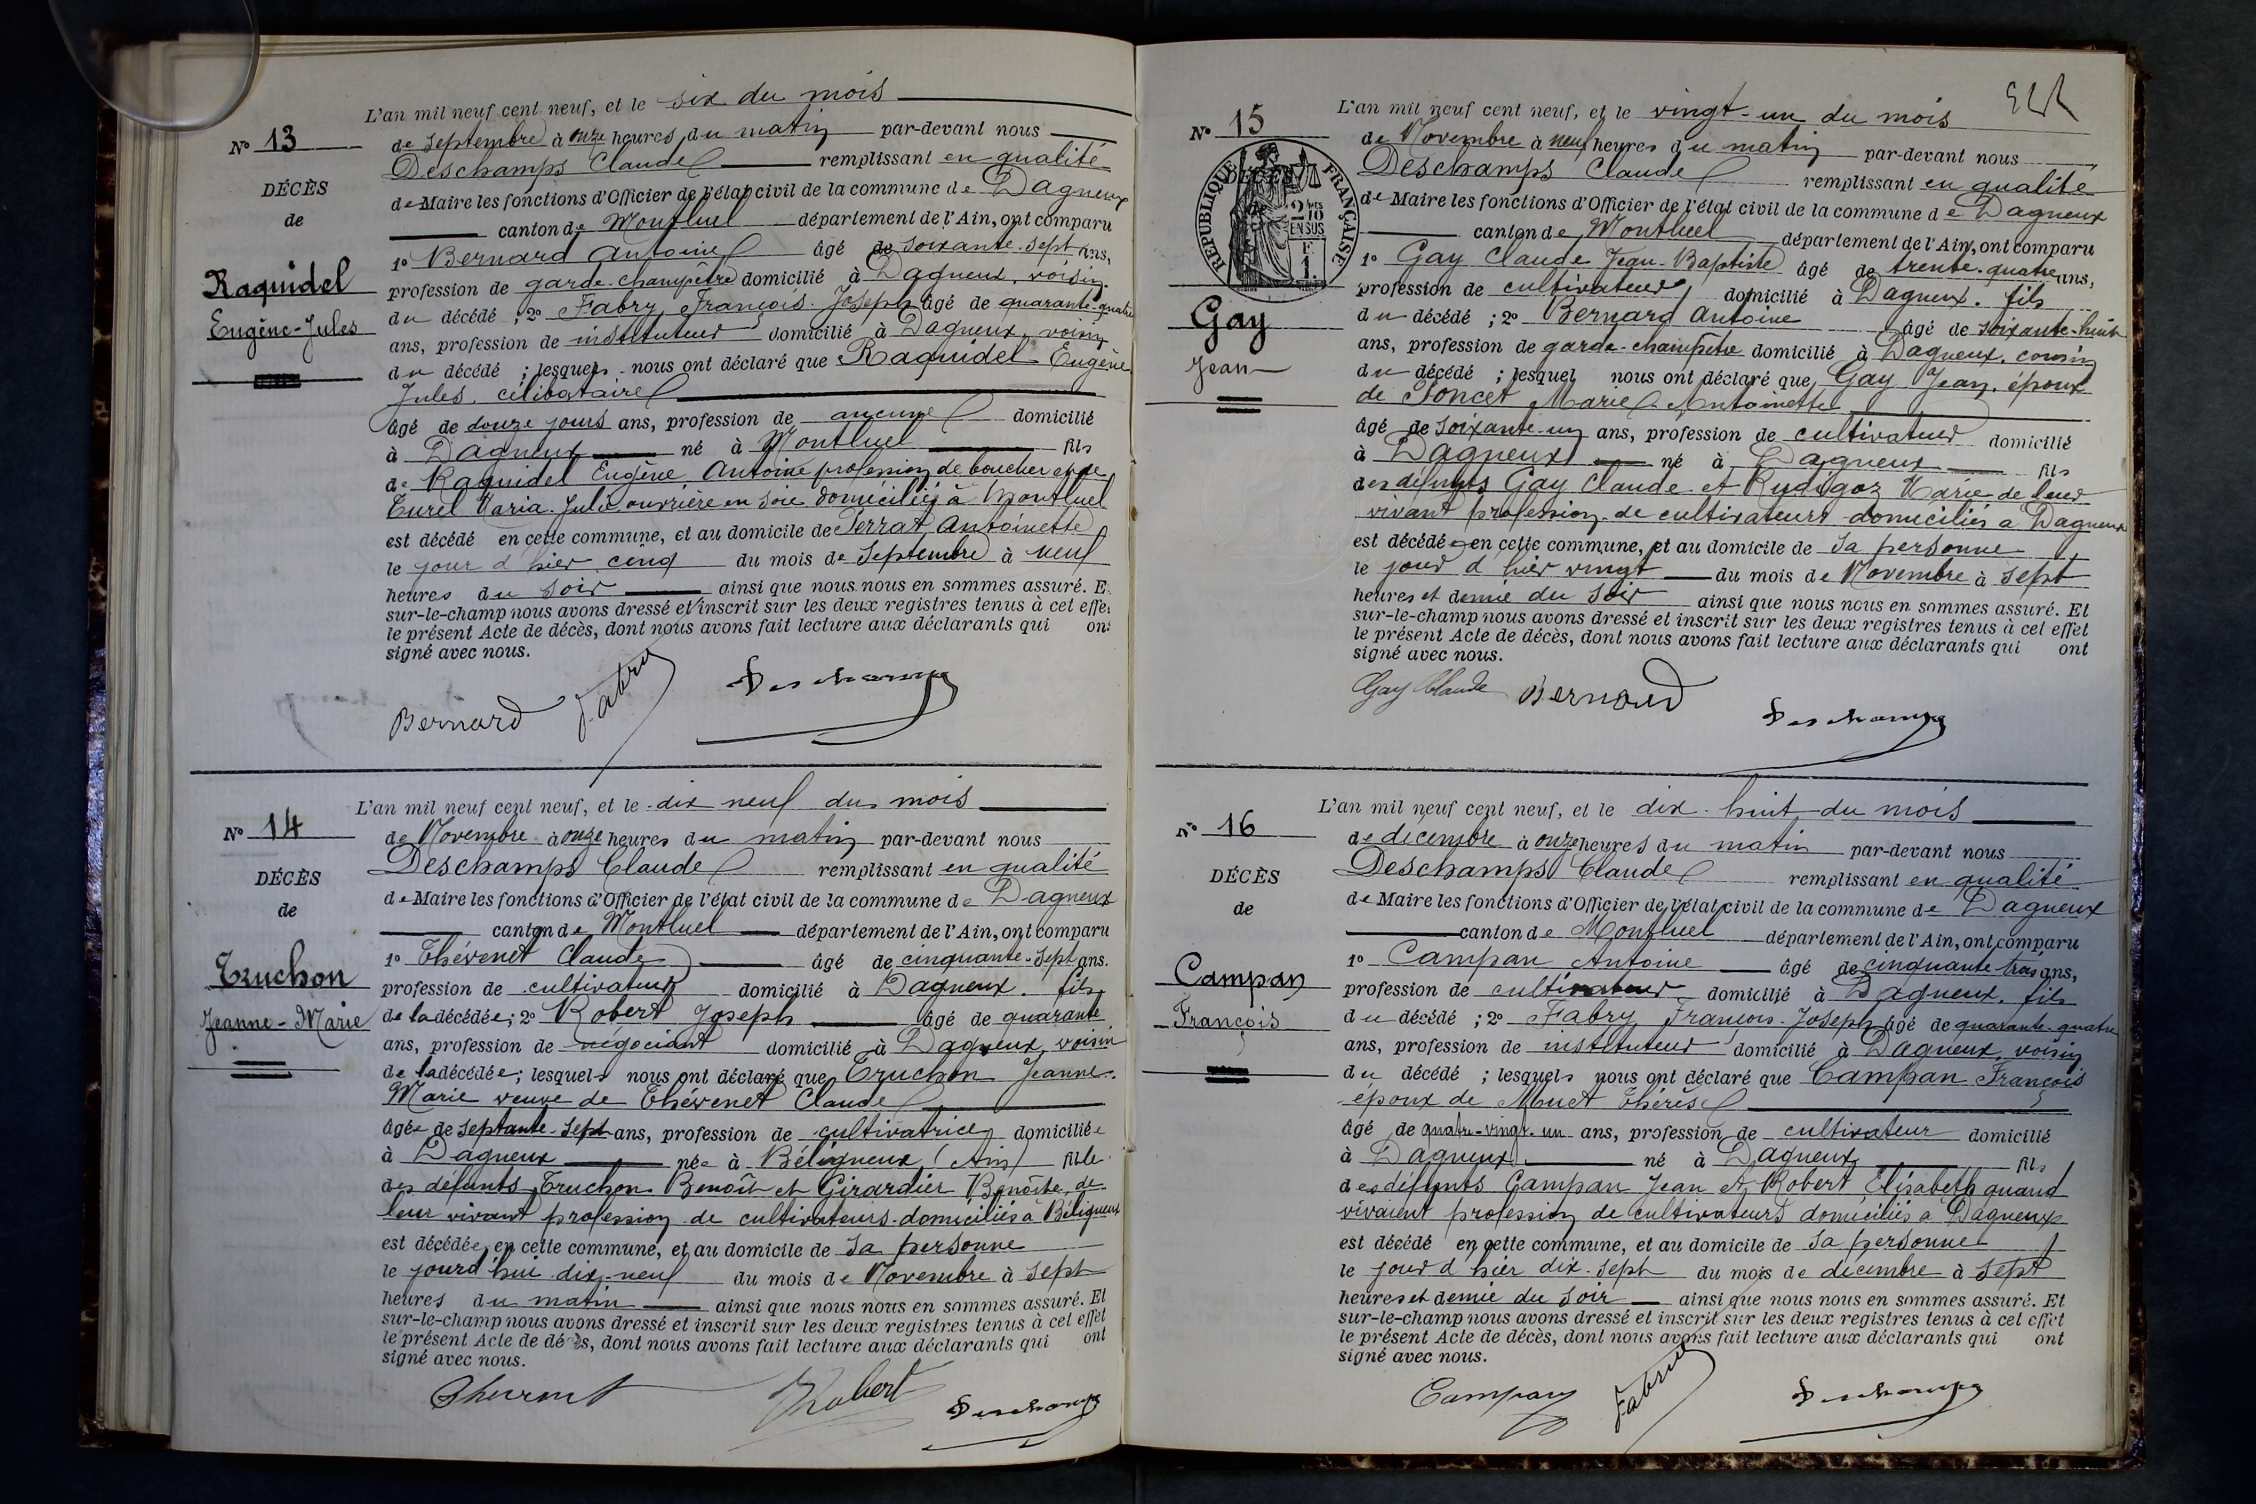 L'an mil neuf cent neuf, et le six du mois
N° 13
de Septembre à onze heures du matin par-devant nous
Deschamps Claude remplissant en qualité
DÉCÈS
de Maire les fonctions d'Officier de l'état civil de la commune de Dagneux
de
canton de Montluel département de l'Ain, ont comparu
1° Bernard Antoine âgé de soixante-sept ans,
Raquidel
profession de garde-champêtre domicilié à Dagneux, voisin
Eugène-Jules
du décédé ; 2° Fabry François-Joseph âgé de quarante-quatre
ans, profession de instituteur domicilié à Dagneux, voisin
du décédé ; lesquels nous ont déclaré que Raquidel Eugène
Jules, célibataire
âgé de douze jours ans, profession de aucune domicilié
à Dagneux né à Montluel fils
de Raquidel Eugène Antoine profession de boucher et de
Turel Maria-Julie ouvrière en soie domiciliés à Montluel
est décédé en cette commune, et au domicile de Perrat Antoinette
le jour d'hier cinq du mois de Septembre à neuf
heures du soir ainsi que nous nous en sommes assuré. E
sur-le-champ nous avons dressé et inscrit sur les deux registres tenus à cet effe
le présent Acte de décès, dont nous avons fait lecture aux déclarants qui ont
signé avec nous.
Bernard Fabry Deschamps
L'an mil neuf cent neuf, et le dix neuf du mois
N° 14
de Novembre à onze heures du matin par-devant nous
Deschamps Claude remplissant en qualité
DÉCÈS
de Maire les fonctions d'Officier de l'état civil de la commune de Dagneux
de
canton de Montluel département de l'Ain, ont comparu
1° Thévenet Claude âgé de cinquante-sept ans.
Truchon
profession de cultivateur domicilié à Dagneux. fils
Jeanne-Marie
de la décédée; 2° Robert Joseph âgé de quarante
ans, profession de négociant domicilié à Dagneux, voisin
de la décédée; lesquels nous ont déclaré que Truchon Jeanne-
Marie veuve de Thévenet Claude
âgée de septante-sept ans, profession de cultivatrice domiciliée
à Dagneux née à Béligneux (Ain) fille
des défunts Truchon Benoît et Girardier Benoîte, de
leur vivant profession de cultivateurs domiciliés à Béligneux
est décédée en cette commune, et au domicile de sa personne
le jourd'hui dix-neuf du mois de Novembre à sept
heures du matin ainsi que nous nous en sommes assuré. Et
sur-le-champ nous avons dressé et inscrit sur les deux registres tenus à cet effet
le présent Acte de décès, dont nous avons fait lecture aux déclarants qui ont
signé avec nous.
Thevenet Robert Deschamps
L'an mil neuf cent neuf, et le vingt-un du mois
N° 15
de Novembre à neuf heures du matin par-devant nous
Deschamps Claude remplissant en qualité
RÉPUBLIQUE FRANÇAISE
2/10 EN SUS
F
1.
de Maire les fonctions d'Officier de l'état civil de la commune de Dagneux
canton de Montluel département de l'Ain, ont comparu
1° Gay Claude Jean-Baptiste âgé de trente-quatre ans,
profession de cultivateur domicilié à Dagneux. fils
Gay
du décédé ; 2° Bernard Antoine âgé de soixante-huit
Jean
ans, profession de garde-champêtre domicilié à Dagneux. cousin
du décédé ; lesquel nous ont déclaré que Gay Jean, époux
de Poncet Marie Antoinette
âgé de soixante-un ans, profession de cultivateur domicilié
à Dagneux né à Dagneux fils
des défunts Gay Claude et Rudigoz Marie de leur
vivant profession de cultivateurs domiciliés à Dagneux
est décédé en cette commune, et au domicile de sa personne
le jour d'hier vingt du mois de Novembre à sept
heures et demie du soir ainsi que nous nous en sommes assuré. Et
sur-le-champ nous avons dressé et inscrit sur les deux registres tenus à cet effet
le présent Acte de décès, dont nous avons fait lecture aux déclarants qui ont
signé avec nous.
Gay Claude Bernard Deschamps
L'an mil neuf cent neuf, et le dix-huit du mois
N° 16
de décembre à onze heures du matin par-devant nous
Deschamps Claude remplissant en qualité
DÉCÈS
de Maire les fonctions d'Officier de l'état civil de la commune de Dagneux
de
canton de Montluel département de l'Ain, ont comparu
1° Campan Antoine âgé de cinquante trois ans,
Campan
profession de cultivateur domicilié à Dagneux. fils
François
du décédé ; 2° Fabry François-Joseph âgé de quarante-quatre
ans, profession de instituteur domicilié à Dagneux, voisin
du décédé ; lesquels nous ont déclaré que Campan François
époux de Muet Thérèse
âgé de quatre-vingt-un ans, profession de cultivateur domicilié
à Dagneux né à Dagneux fils
des défunts Campan Jean et Robert Elisabeth quand
vivaient profession de cultivateurs domiciliés à Dagneux
est décédé en cette commune, et au domicile de sa personne
le jour d'hier dix-sept du mois de décembre à sept
heures et demie du soir ainsi que nous nous en sommes assuré. Et
sur-le-champ nous avons dressé et inscrit sur les deux registres tenus à cet effet
le présent Acte de décès, dont nous avons fait lecture aux déclarants qui ont
signé avec nous.
Campan Fabry Deschamps